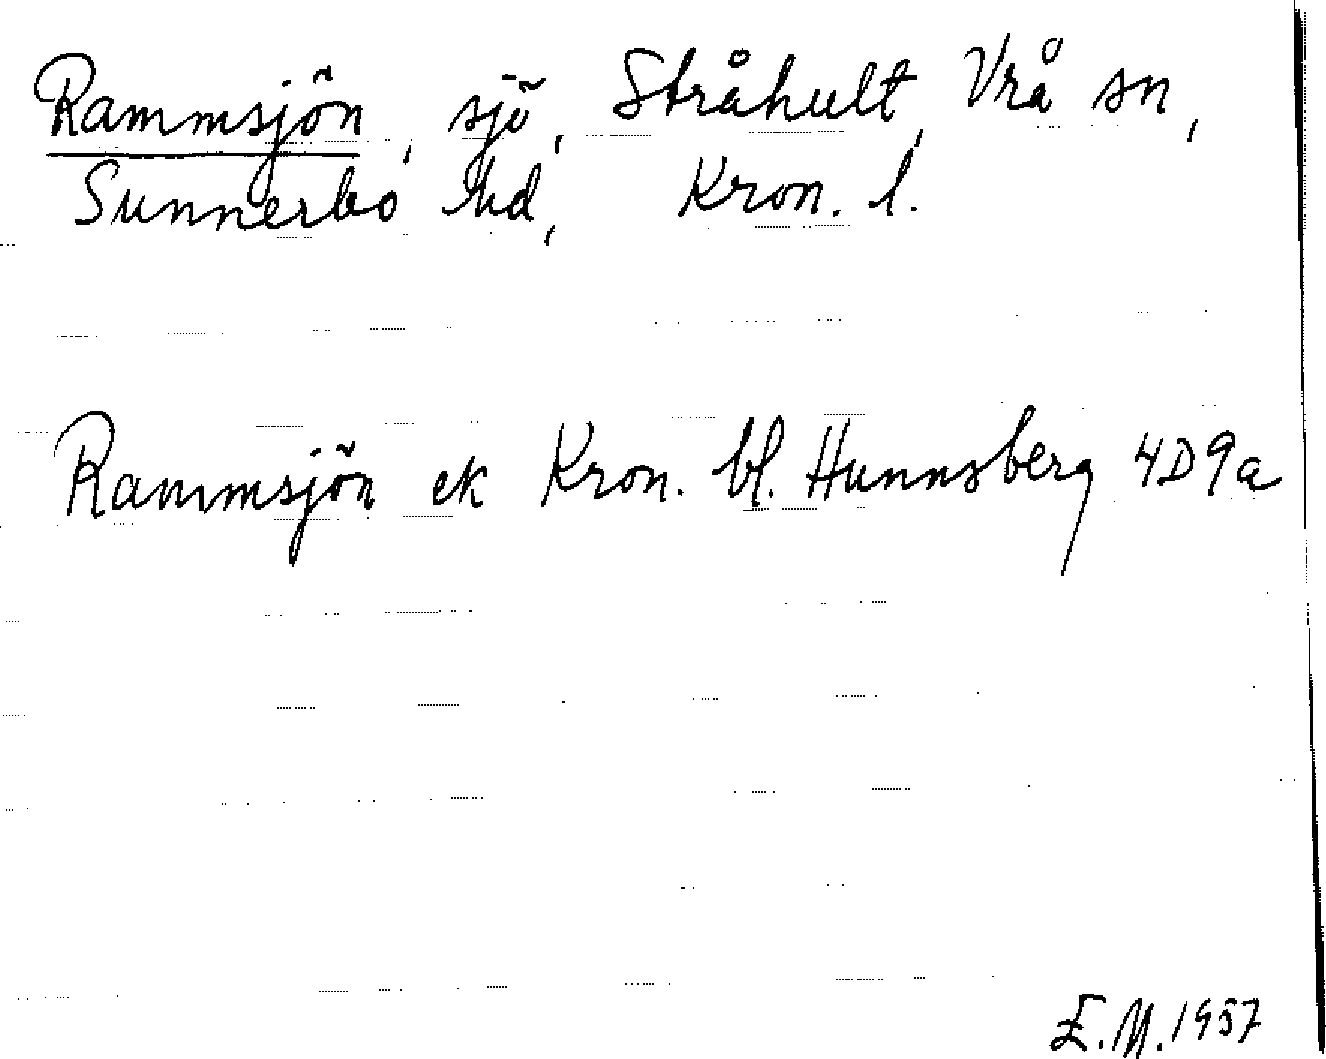 Rammsjön, sjö, Stråhult, Vrå sn,
Sunnerbo hd, Kron. l.
Rammsjön ek Kron. bl. Hunnsberg 4D9a
E.M. 1957